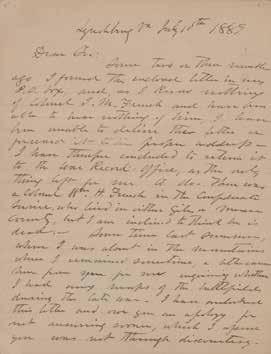 Lynchburg Va July 18th 1889
Dear Sir:
Some two or three months
ago I found the enclosed letter in my
P.O. box, and, as I know nothing
of Colonel S. M. French and have been
able to hear nothing of him, I have
been unable to deliver this letter or
proper address
I have therefore concluded to return it
to the War Record Office, as the only
thing left for me. A Col. There was
a Colonel Wm H. French in the Confederate
Service, who lived in either Giles or Mercer
County, but I am inclined to think he is
dead. Some time last summer,
when I was about in the mountains
where I remained sometime, a letter came
here from you for me inquiring whether
I had any maps of the battlefields
during the late war. I have overlooked
this letter and owe you an apology for
not answering sooner, which I assure
you was not through discourtesy.